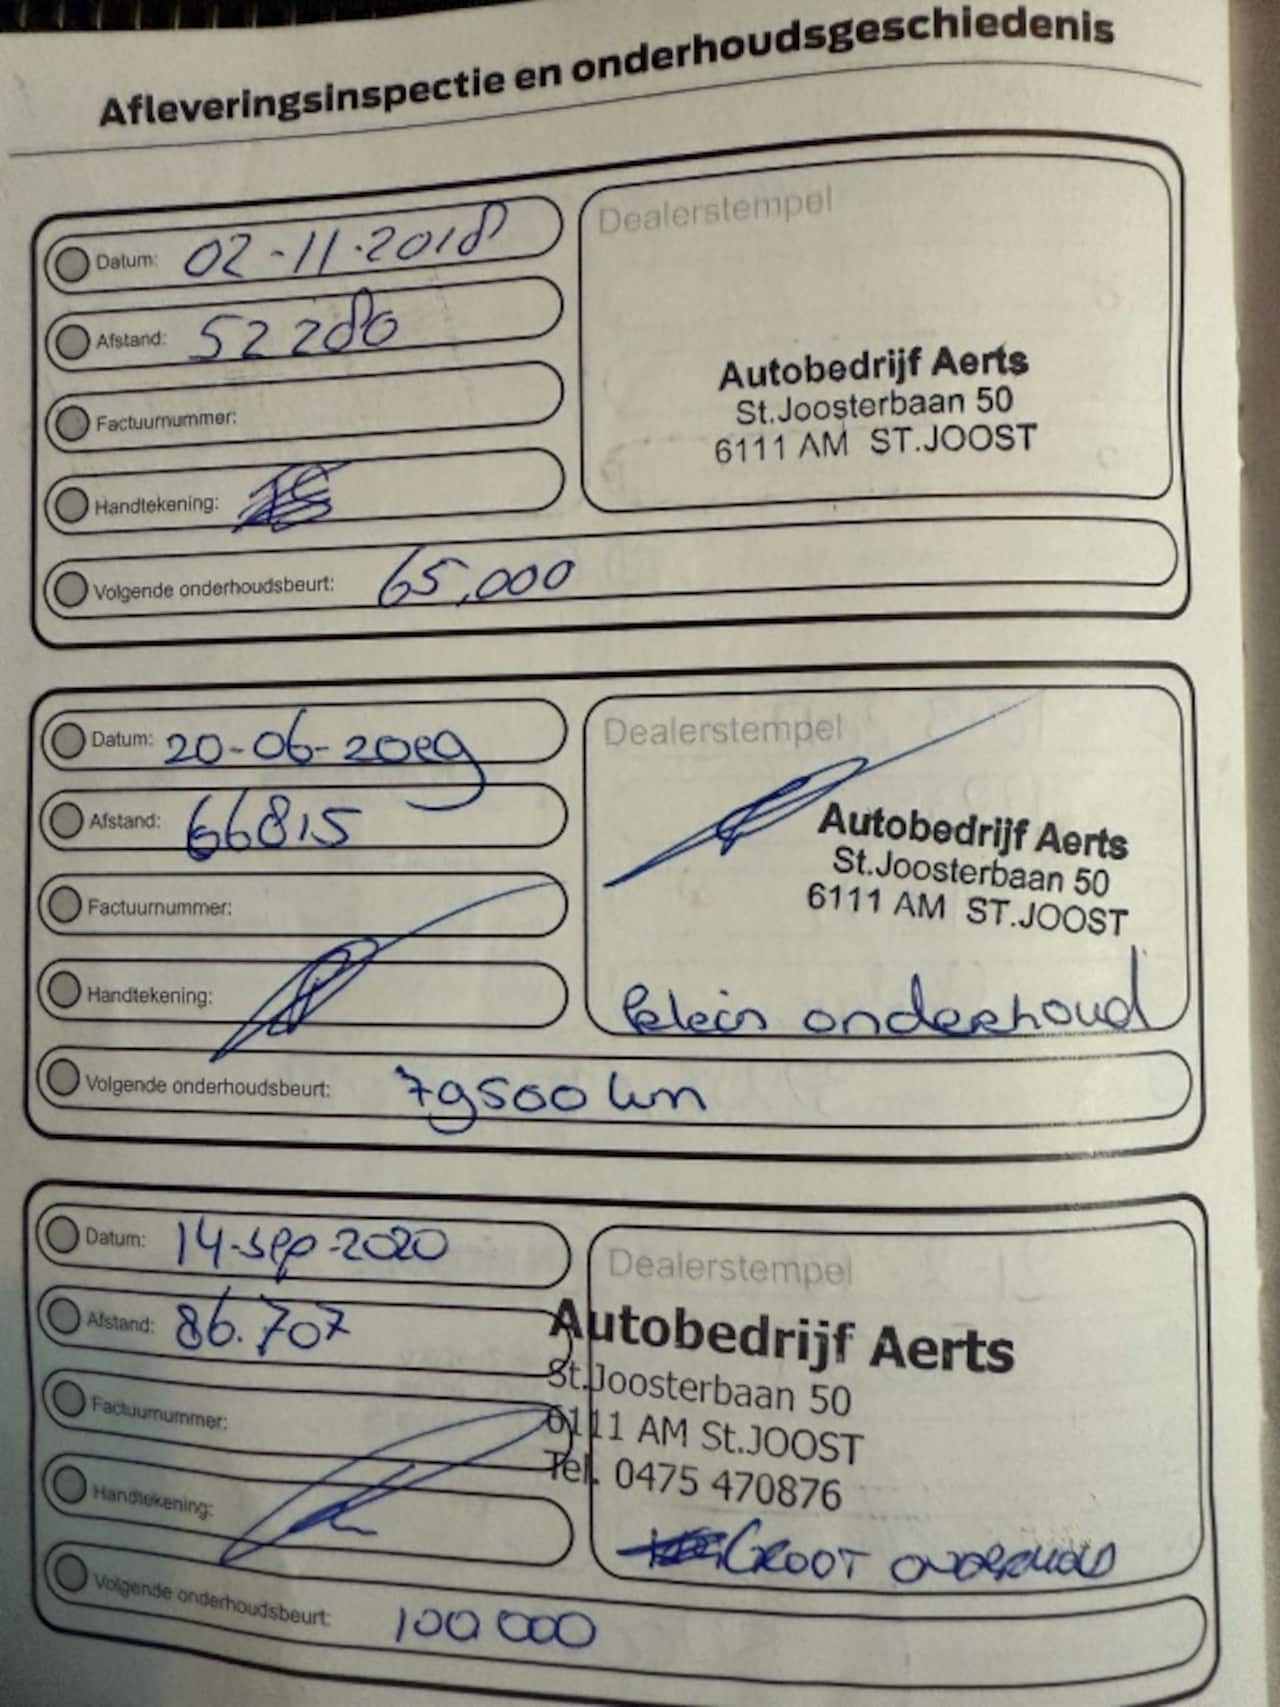 Afleveringsinspectie en onderhoudsgeschiedenis
Datum: 02-11-2018
Afstand: 52280
Factuurnummer:
Handtekening:
Volgende onderhoudsbeurt: 65,000
Dealerstempel
Autobedrijf Aerts
St.Joosterbaan 50
6111 AM ST.JOOST
Datum: 20-06-2019
Afstand: 66815
Factuurnummer:
Handtekening:
Volgende onderhoudsbeurt: 79500 km
Dealerstempel
Autobedrijf Aerts
St.Joosterbaan 50
6111 AM ST.JOOST
klein onderhoud
Datum: 14-sep-2020
Afstand: 86.707
Factuurnummer:
Handtekening:
Volgende onderhoudsbeurt: 100 000
Dealerstempel
Autobedrijf Aerts
St.Joosterbaan 50
6111 AM St.JOOST
Tel. 0475 470876
GROOT ONDERHOUD